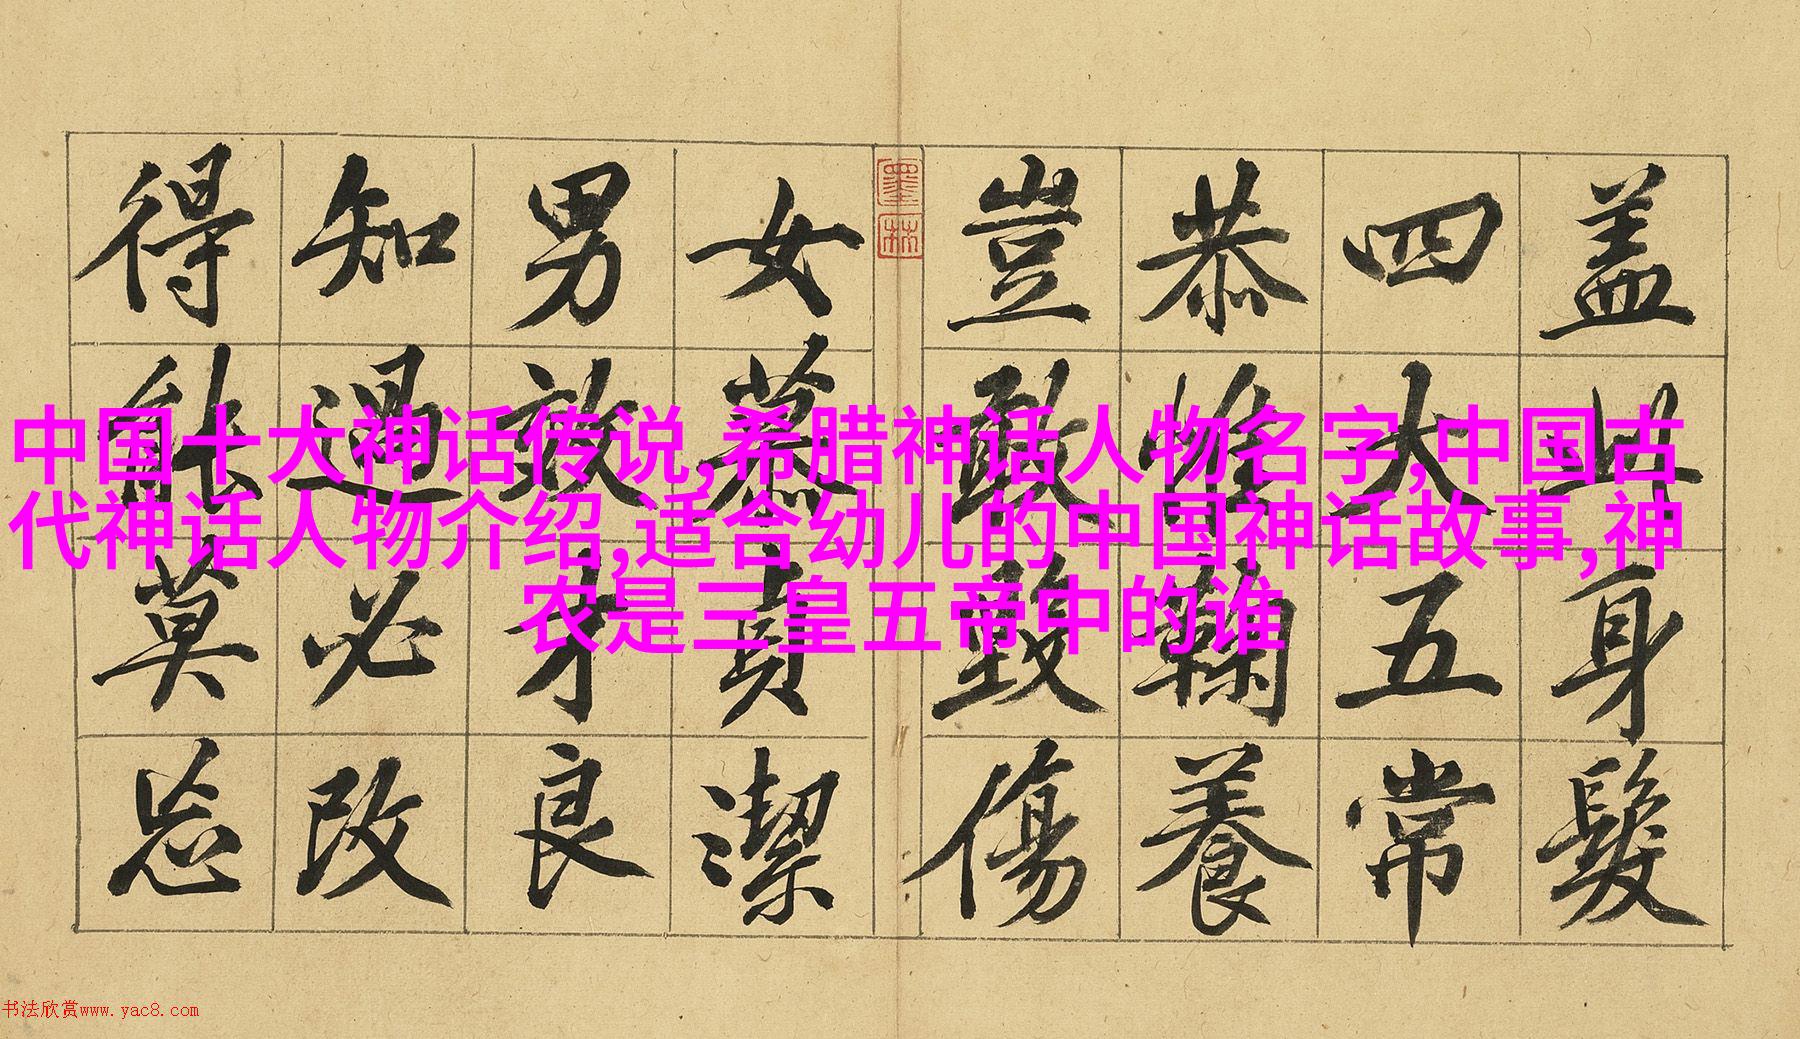 盖此身髮
四大五常
恭惟鞠養
豈敢毀傷
墨林
女慕貞潔
男效才良
知過必改
得能莫忘
中国十大神话传说,希腊神话人物名字,中国古
代神话人物介绍,适合幼儿的中国神话故事,神
农是三皇五帝中的谁
书法欣赏www.yac8.com